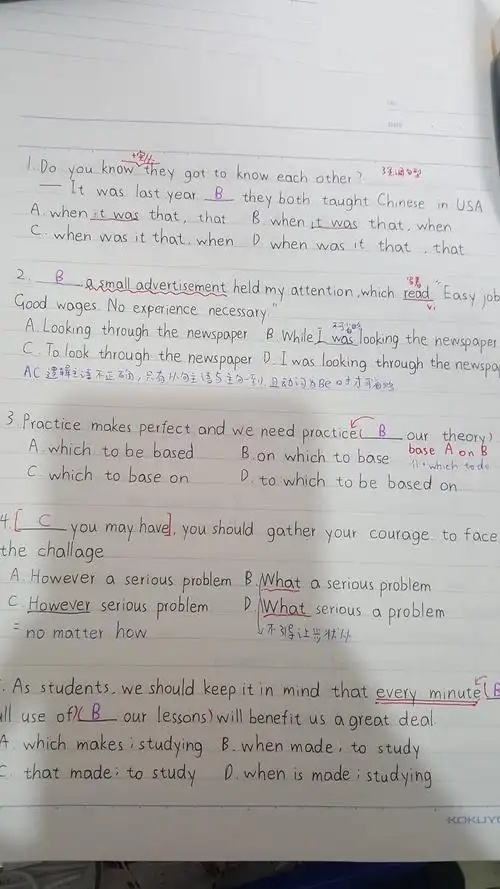 1. Do you know they got to know each other?
— It was last year B they both taught Chinese in USA
A. when it was that, that B. when it was that, when
C. when was it that, when D. when was it that, that
2. B a small advertisement held my attention, which read "Easy job
Good wages. No experience necessary"
A. Looking through the newspaper B. While I was looking the newspaper
C. To look through the newspaper D. I was looking through the newspa
3. Practice makes perfect and we need practice( B our theory)
base A on B
A. which to be based B. on which to base
which to do
C. which to base on D. to which to be based on
4. [ C you may have], you should gather your courage to face
the challage
A. However a serious problem B. What a serious problem
C. However serious problem D. What serious a problem
= no matter how 不引导让步状从
. As students, we should keep it in mind that every minute( B
ull use of)( B our lessons) will benefit us a great deal.
A. which makes; studying B. when made, to study
C. that made; to study D. when is made; studying
KOKUYO